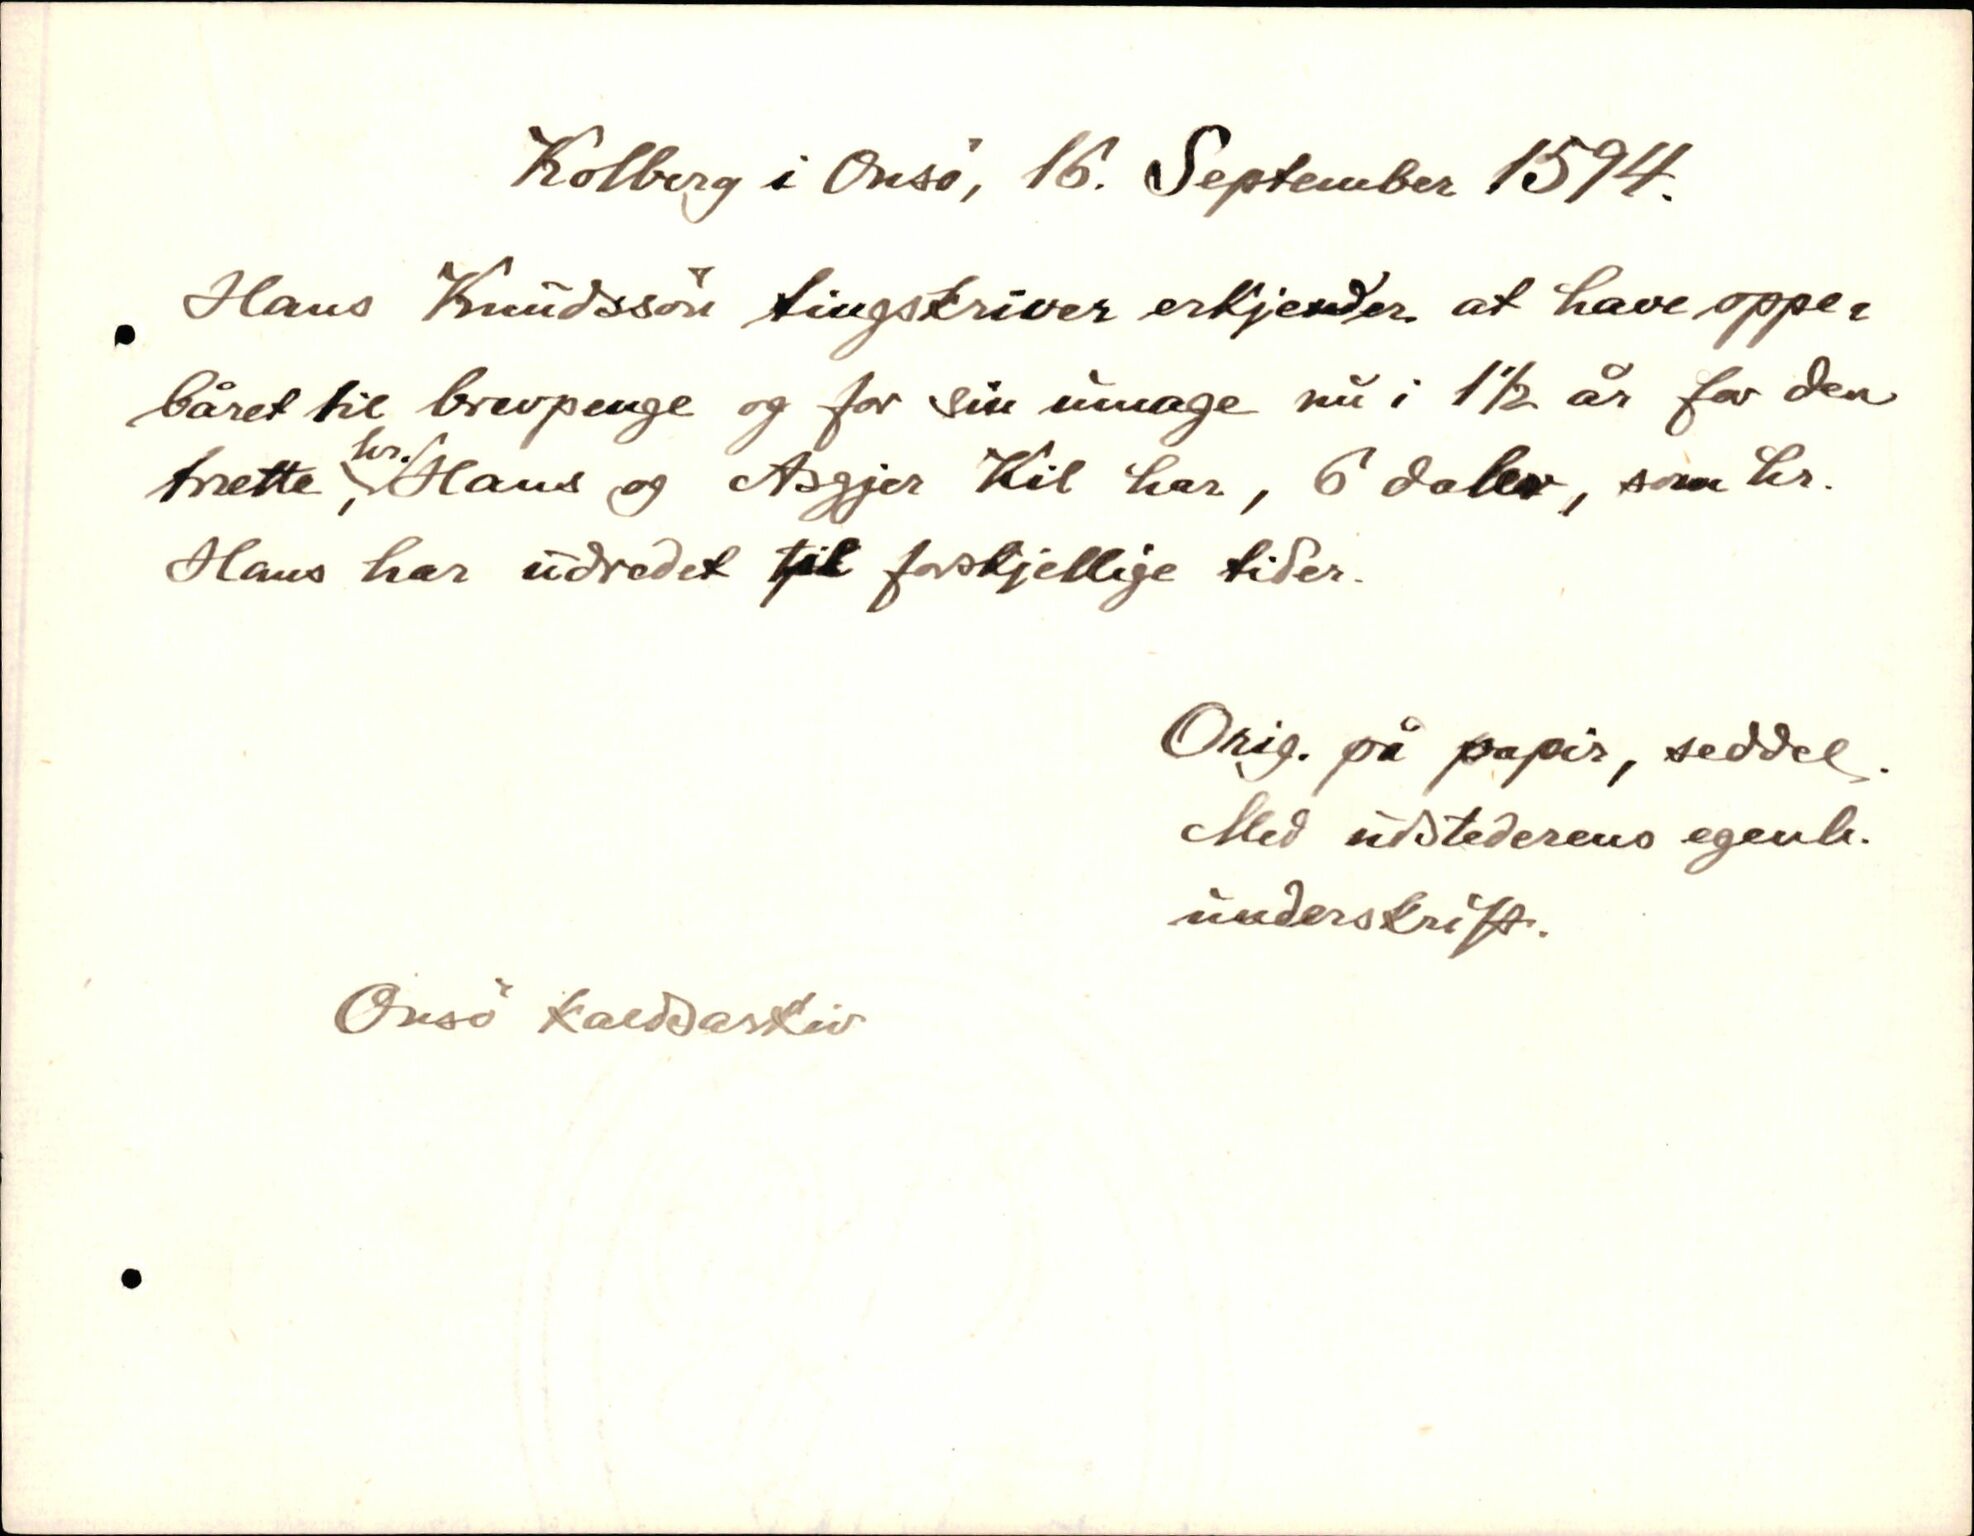 Kolberg i Onsö, 16. September 1594.
Hans Knudssön tingskriver erkjender at have oppe-
båret til brevpenge og for sin umage nu i 1 1/2 år for den
trette, hr. Hans og Asgjer Kil har, 6 daler, som hr.
Hans har udredet til forskjellige tider.
Orig. på papir, seddel.
Med udstederens egenh.
underskrift.
Onsö kaldsarkiv